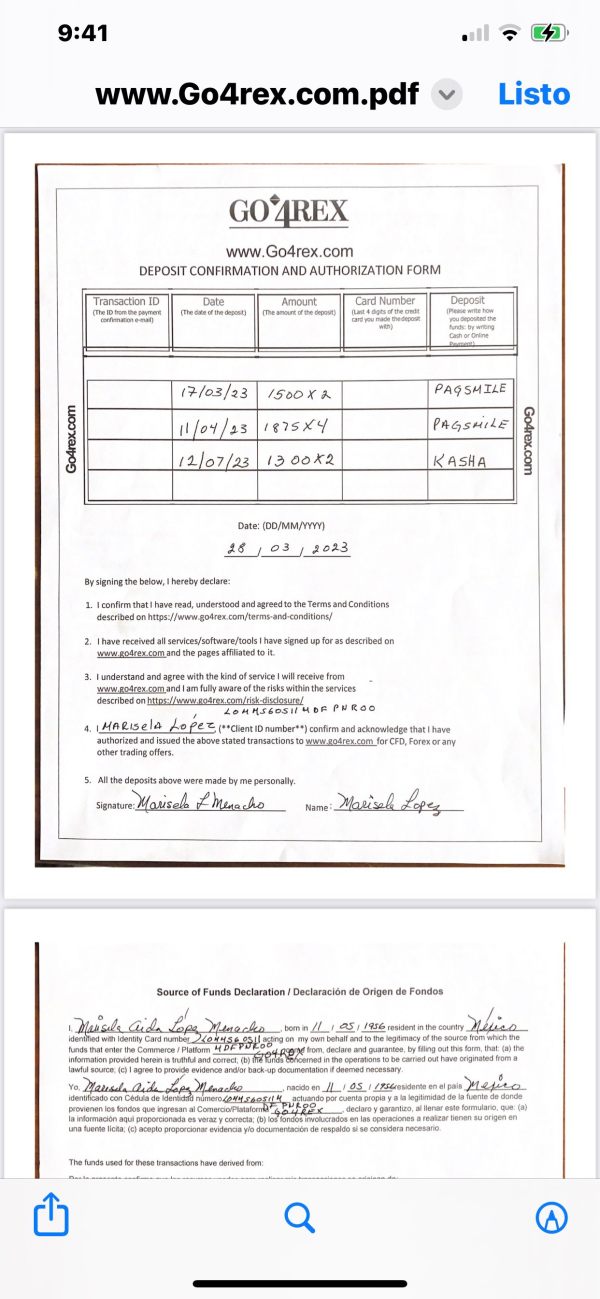 9:41
www.Go4rex.com.pdf
Listo
GO4REX
www.Go4rex.com
DEPOSIT CONFIRMATION AND AUTHORIZATION FORM
Transaction ID Date Amount Card Number Deposit
(The ID from the payment confirmation e-mail) (The date of the deposit) (The amount of the deposit) (Last 4 digits of the credit card you made the deposit with) (Please write how you deposited the funds: by writing Cash or Online Payment)
17/03/23 1500 X 2 PAGSMILE
11/04/23 1875X4 PAGSMILE
12/07/23 1300X2 KASHA
Go4rex.com
Go4rex.com
Date: (DD/MM/YYYY)
28 / 03 / 2023
By signing the below, I hereby declare:
1. I confirm that I have read, understood and agreed to the Terms and Conditions
described on https://www.go4rex.com/terms-and-conditions/
2. I have received all services/software/tools I have signed up for as described on
www.go4rex.com and the pages affiliated to it.
3. I understand and agree with the kind of service I will receive from
www.go4rex.com and I am fully aware of the risks within the services
described on https://www.go4rex.com/risk-disclosure/
LOMM560511MDFPNR00
4. I MARISELA López (**Client ID number**) confirm and acknowledge that I have
authorized and issued the above stated transactions to www.go4rex.com for CFD, Forex or any
other trading offers.
5. All the deposits above were made by me personally.
Signature: Marisela L Menacho Name: Marisela Lopez
Source of Funds Declaration / Declaración de Origen de Fondos
I, Marisela Aida López Menacho, born in 11 / 05 / 1956 resident in the country México
identified with Identity Card number LOMM560511 acting on my own behalf and to the legitimacy of the source from which the
funds that enter the Commerce / Platform MDFPNR00 GO4REX come from, declare and guarantee, by filling out this form, that: (a) the
information provided herein is truthful and correct; (b) the funds concerned in the operations to be carried out have originated from a
lawful source; (c) I agree to provide evidence and/or back-up documentation if deemed necessary.
Yo, Marisela Aida López Menacho, nacido en 11 / 05 / 1956 residente en el país México
identificado con Cédula de Identidad número LOMM560511M actuando por cuenta propia y a la legitimidad de la fuente de donde
provienen los fondos que ingresan al Comercio/Plataforma DFPNR00 GO4REX, declaro y garantizo, al llenar este formulario, que: (a)
la información aquí proporcionada es veraz y correcta; (b) los fondos involucrados en las operaciones a realizar tienen su origen en
una fuente lícita; (c) acepto proporcionar evidencia y/o documentación de respaldo si se considera necesario.
The funds used for these transactions have derived from: